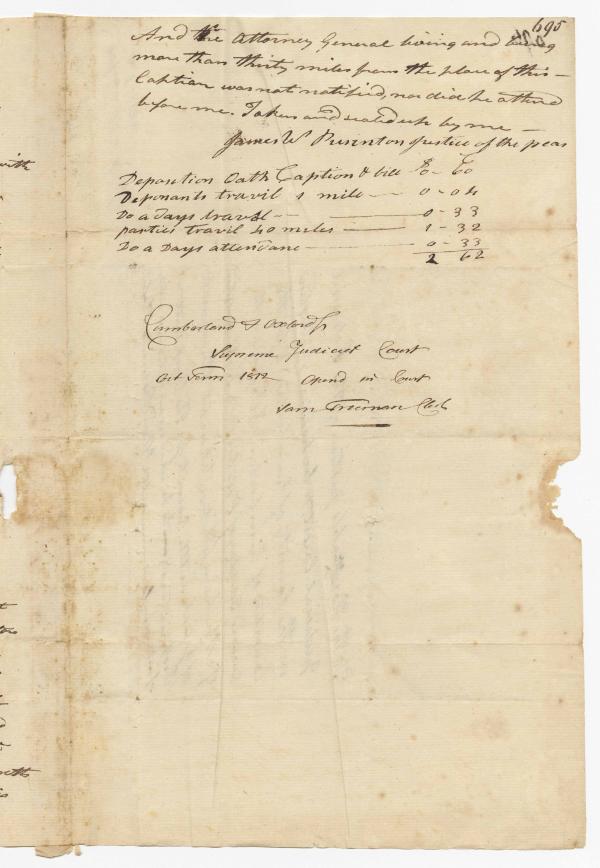 695
And the Attorney General living and being
more than thirty miles from the place of this
Caption was not notified, nor did he attend
before me. Taken and sealed up by me —
James W Purinton Justice of the peas
Deposition Oath Caption & bill $0 - 60
Deponants travil 1 mile — 0 - 04
Do a days travel — 0 - 33
parties travil 40 miles — 1 - 32
Do a Days attendanc — 0 - 33
2 62
Cumberland & Oxford Ss
Supreme Judicial Court
Oct Term 1812 Opend in Court
Sam Freeman Clerk
with